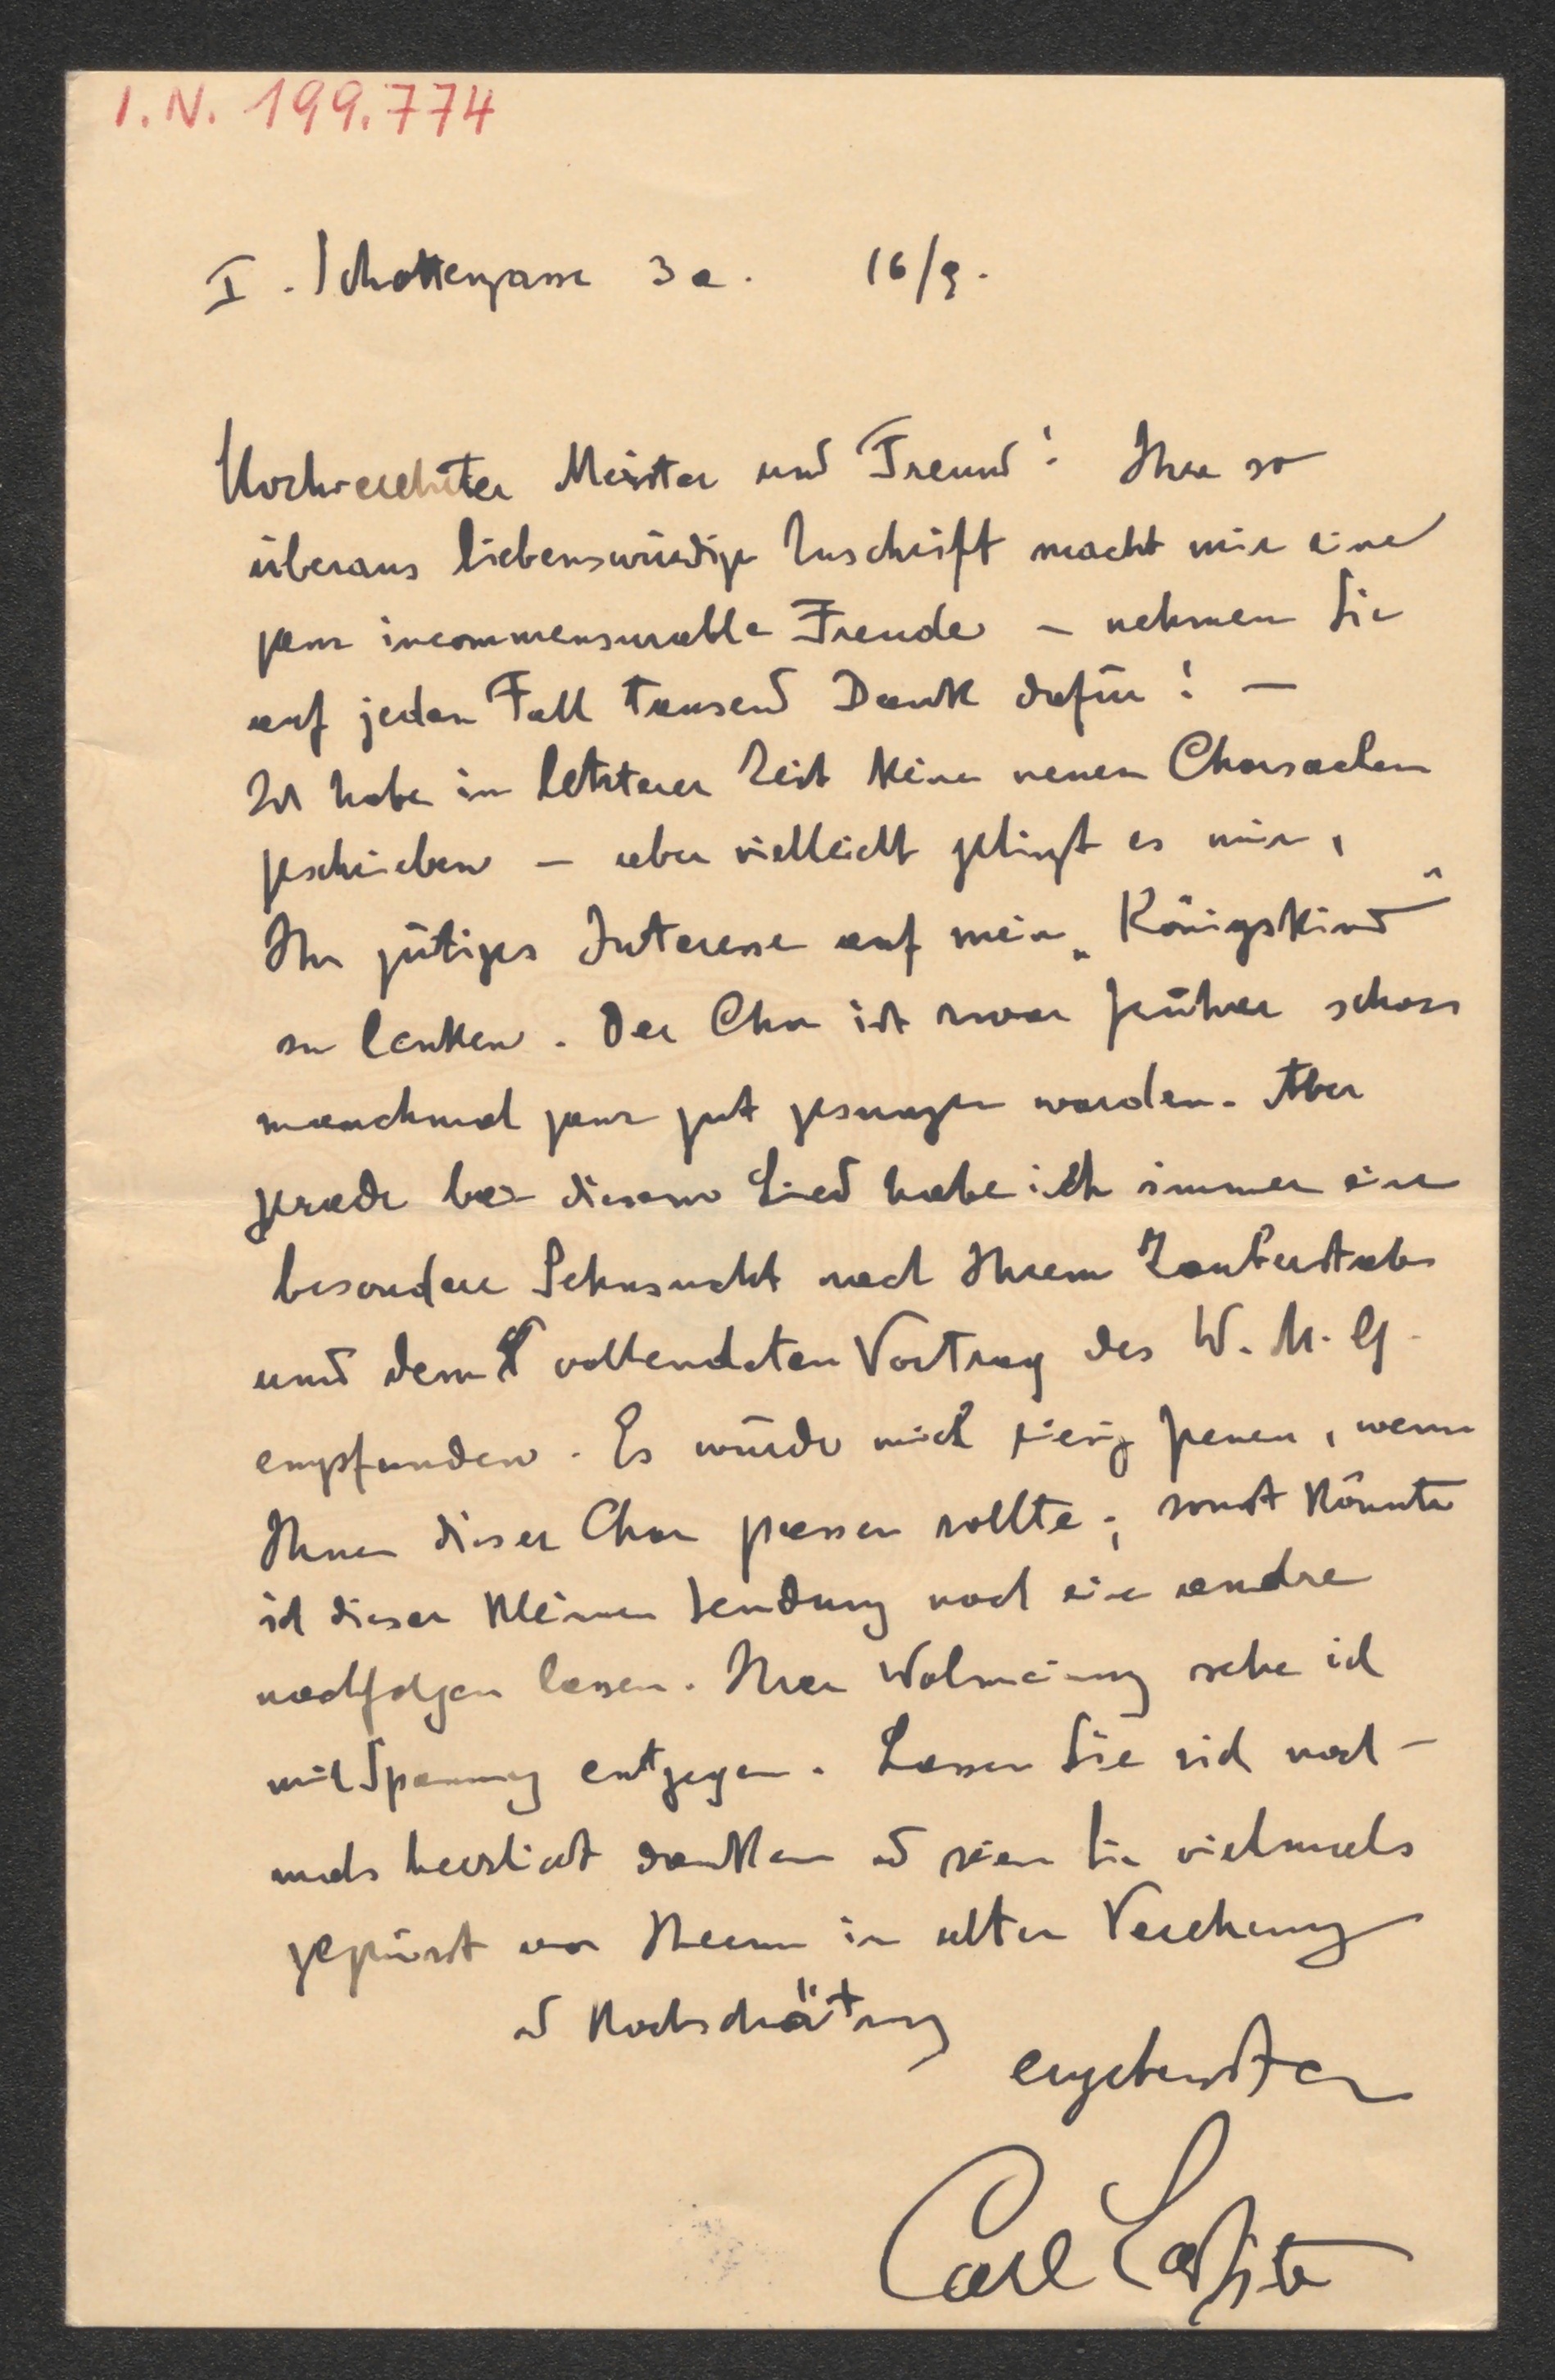 I. N. 199.774
I. Schottengasse 3a. 16/9.
Hochverehrter Meister und Freund! Ihre so
überaus liebenswürdige Zuschrift macht mir eine
ganz incommensurable Freude – nehmen Sie
auf jeden Fall tausend Dank dafür! –
Ich habe in letzterer Zeit keine neuen Chorsachen
geschrieben – aber vielleicht gelingt es mir,
Ihr gütiges Interesse auf mein „Königskind"
zu lenken. Der Chor ist zwar früher schon
manchmal ganz gut gesungen worden. Aber
gerade bei diesem Lied habe ich immer eine
besondere Sehnsucht nach Ihrem Zauberstabe
und dem vollendeten Vortrag des W. M. G.
empfunden. Es würde mich riesig freuen, wenn
Ihnen dieser Chor passen sollte; sonst könnte
ich dieser kleinen Sendung noch eine andre
nachfolgen lassen. Ihrer Wolmeinung sehe ich
mit Spannung entgegen. Lassen Sie sich noch-
mals herzlichst danken u seien Sie vielmals
gegrüsst von Ihrem in alter Verehrung
u Hochschätzung
ergebensten
Carl Lafite